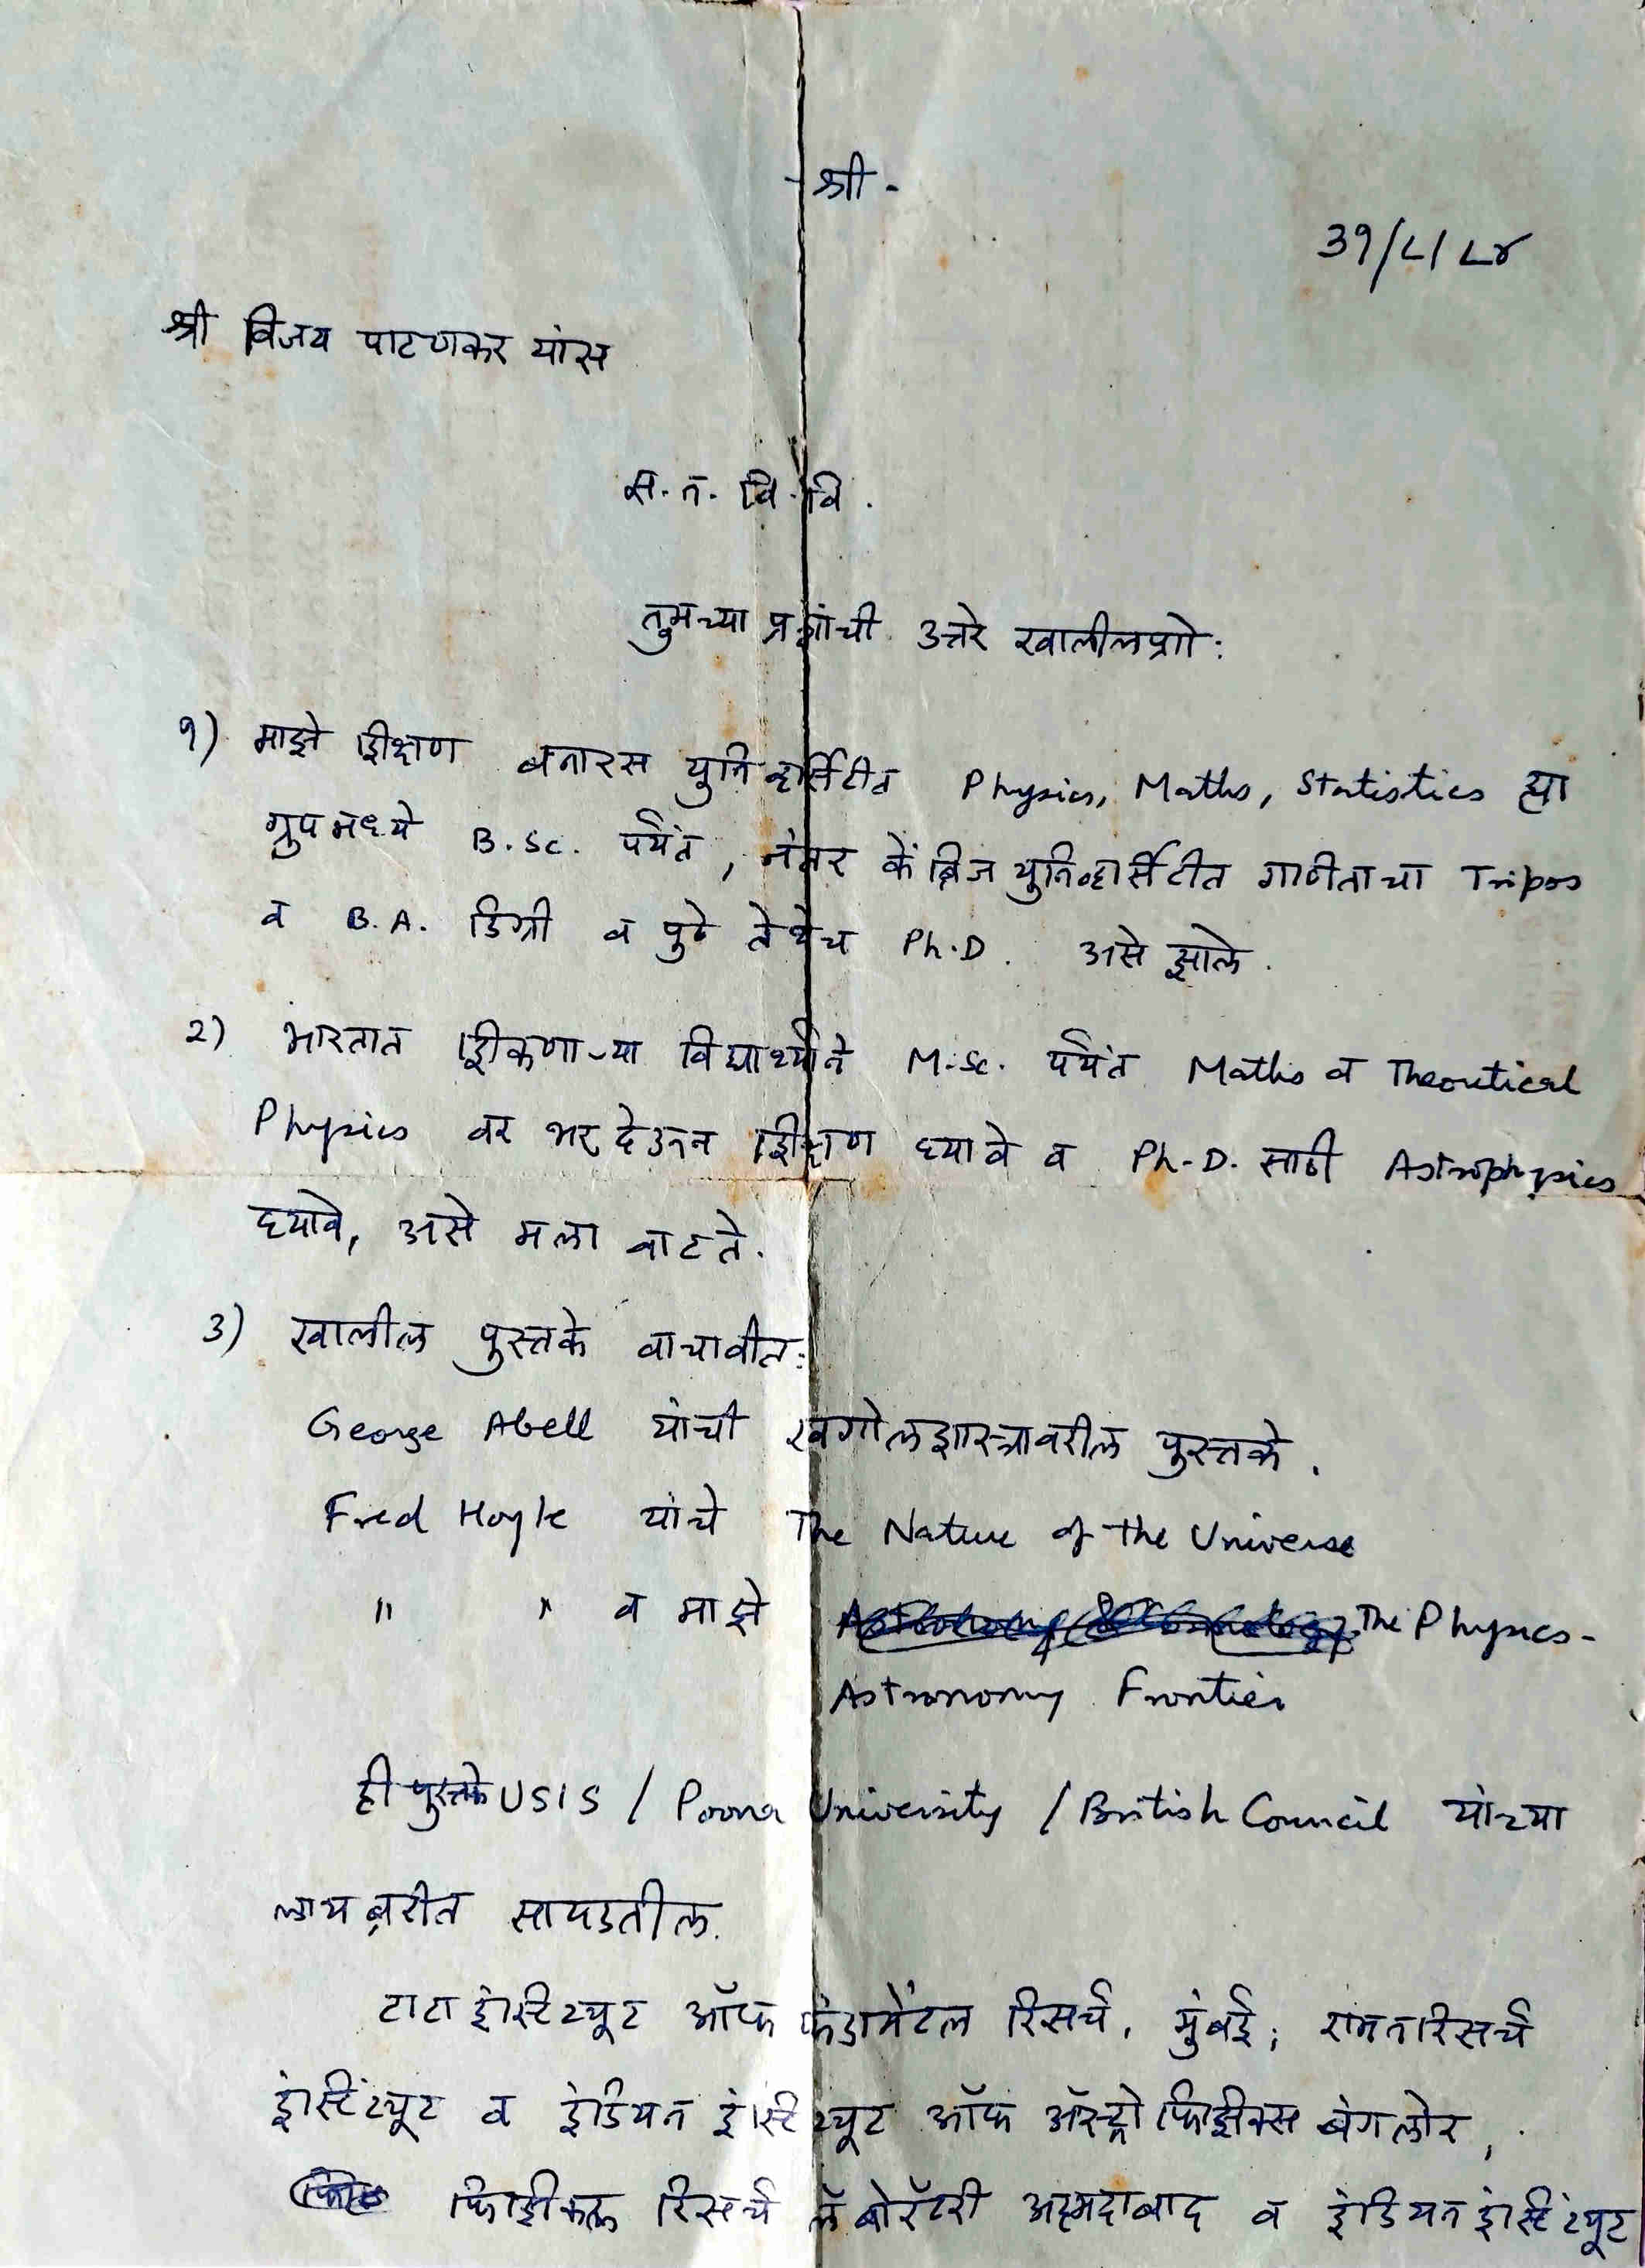 - श्री -
३१/८/८४
श्री विजय पाटणकर यांस
स. न. वि. वि.
तुमच्या प्रश्नांची उत्तरे खालीलप्रमाणे:
१) माझे शिक्षण बनारस युनिव्हर्सिटीत Physics, Maths, Statistics ह्या
ग्रुपमध्ये B.Sc. पर्यंत, नंतर केंब्रिज युनिव्हर्सिटीत गणिताचा Tripos
व B.A. डिग्री व पुढे तेथेच Ph.D. असे झाले.
२) भारतात शिकणाऱ्या विद्यार्थ्याने M.Sc. पर्यंत Maths व Theoretical
Physics वर भर देऊन शिक्षण घ्यावे व Ph-D. साठी Astrophysics
घ्यावे, असे मला वाटते.
३) खालील पुस्तके वाचावीत:
George Abell यांची खगोलशास्त्रावरील पुस्तके.
Fred Hoyle यांचे The Nature of the Universe
" " व माझे The Physics-
Astronomy Frontier
ही पुस्तके USIS / Poona University / British Council यांच्या
लायब्ररीत सापडतील.
टाटा इंस्टिट्यूट ऑफ फंडामेंटल रिसर्च, मुंबई; रामन रिसर्च
इंस्टिट्यूट व इंडियन इंस्टिट्यूट ऑफ अॅस्ट्रोफिझीक्स बंगलोर,
फिझीकल रिसर्च लॅबोरॅटरी अहमदाबाद व इंडियन इंस्टिट्यूट